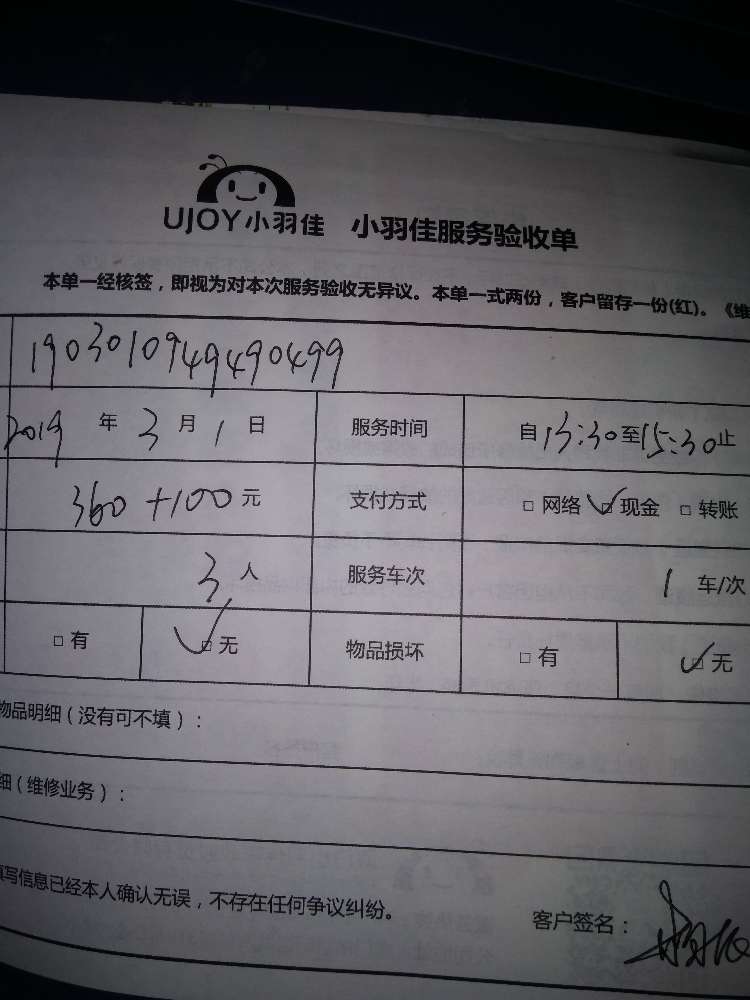 UJOY小羽佳 小羽佳服务验收单
本单一经核签，即视为对本次服务验收无异议。本单一式两份，客户留存一份(红)。《维
190301094949​0499
2019 年 3 月 1 日 服务时间 自 13:30 至 15:30 止
360 + 100 元 支付方式 □ 网络 ☑ 现金 □ 转账
3 人 服务车次 1 车/次
□ 有 ☑ 无 物品损坏 □ 有 ☑ 无
物品明细（没有可不填）：
细（维修业务）：
填写信息已经本人确认无误，不存在任何争议纠纷。
客户签名：